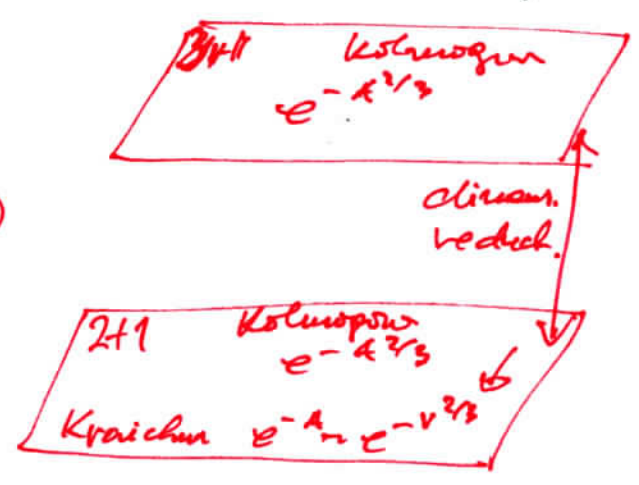 3+1 Kolmogorov
e^{-A^{2/3}}
dimens.
reduct.
2+1 Kolmogorov
e^{-A^{2/3}}
Kraichnan e^{-A} ~ e^{-V^{2/3}}